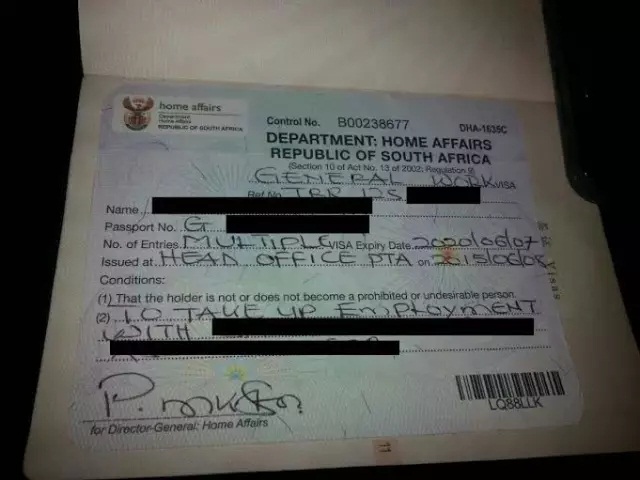 home affairs
Department:
Home Affairs
REPUBLIC OF SOUTH AFRICA
Control No. B00238677
DHA-1635C
DEPARTMENT: HOME AFFAIRS
REPUBLIC OF SOUTH AFRICA
(Section 10 of Act No. 13 of 2002: Regulation
GENERAL WORK VISA
Ref No. TRR
Name
Passport No. G
No. of Entries MULTIPLE VISA Expiry Date 2020/06/07
Issued at HEAD OFFICE PTA on 2015/06/08
Conditions:
(1) That the holder is not or does not become a prohibited or undesirable person.
(2) TO TAKE UP EMPLOYMENT
WITH
for Director-General: Home Affairs
LQ88LLK
Visas
11